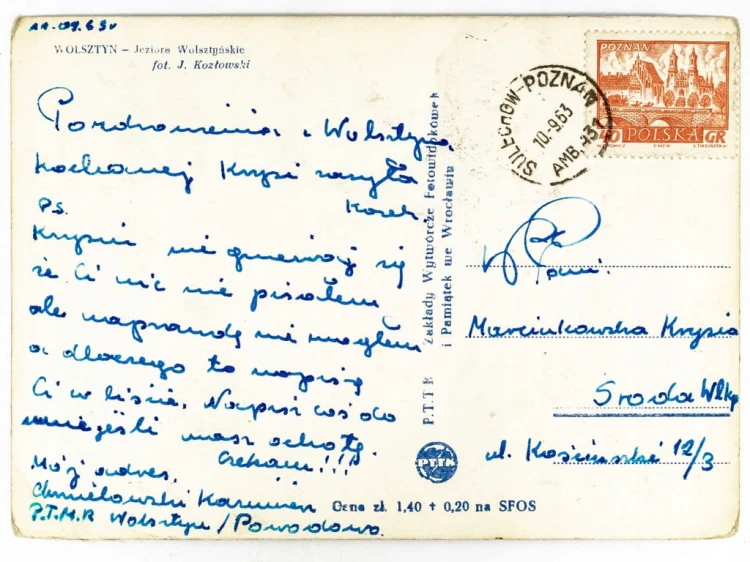 11.09.63r
WOLSZTYN – Jezioro Wolsztyńskie
fot. J. Kozłowski
Pozdrowienia z Wolsztyna
kochanej Krysi zasyła
Kazek.
PS.
Krysiu nie gniewaj się
że Ci nic nie pisałem
ale naprawdę nie mogłem
a dlaczego to napiszę
Ci w liście. Napisz coś do
mnie jeśli masz ochotę.
Czekam!!!
Mój adres.
Chmielowski Kazimierz
P.T.M.R Wolsztyn / Powodowo.
P.T.T.K Zakłady Wytwórcze Fotowidokówek
i Pamiątek we Wrocławiu
PTTK
Cena zł. 1,40 + 0,20 na SFOS
SULECHÓW-POZNAŃ
10.-9.63
AMB. 431
POZNAŃ
40 POLSKA GR
W Pani.
Marcinkowska Krysia
Środa Wlkp
ul. Kościuszki 12/3